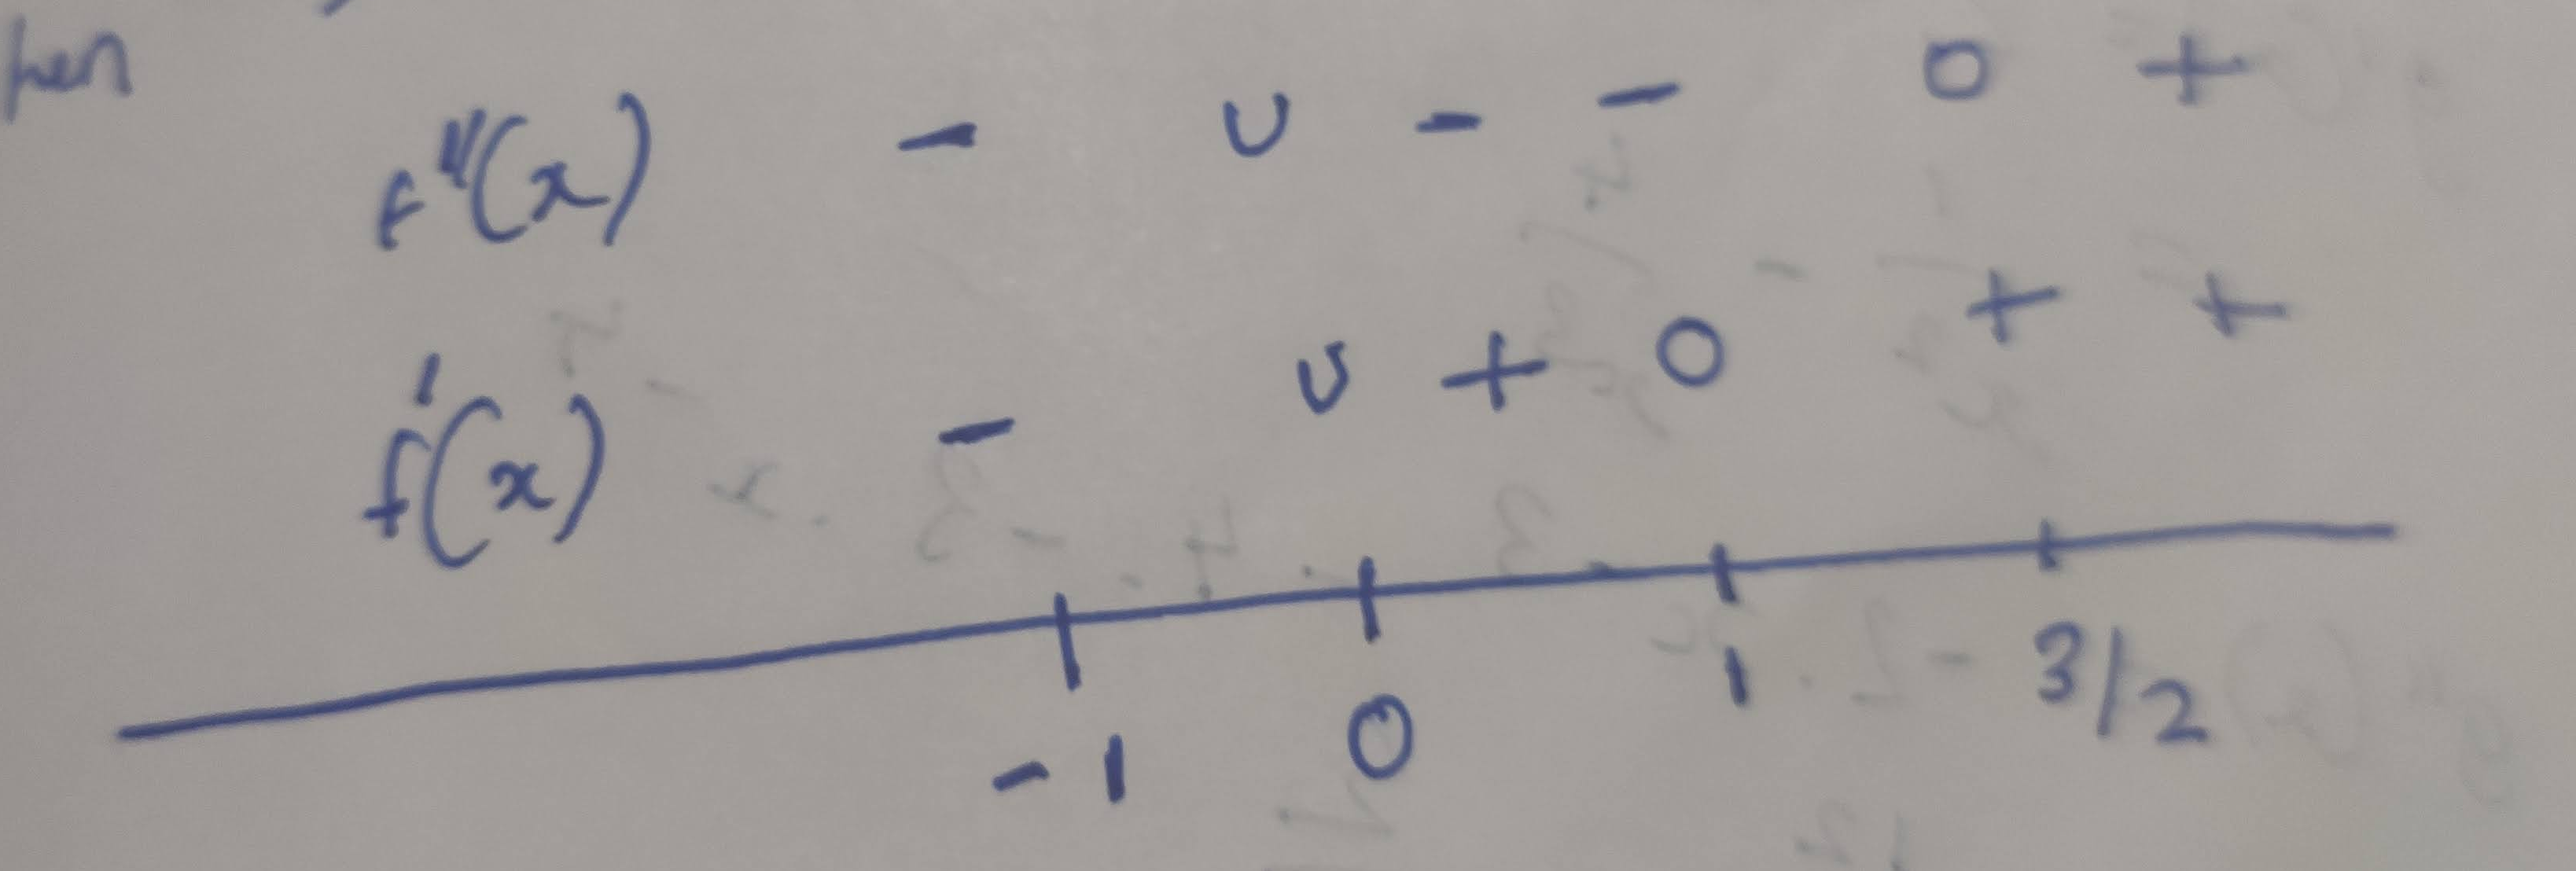 f''(x) - U - - 0 +
f'(x) - U + 0 + +
-1 0 1 3/2